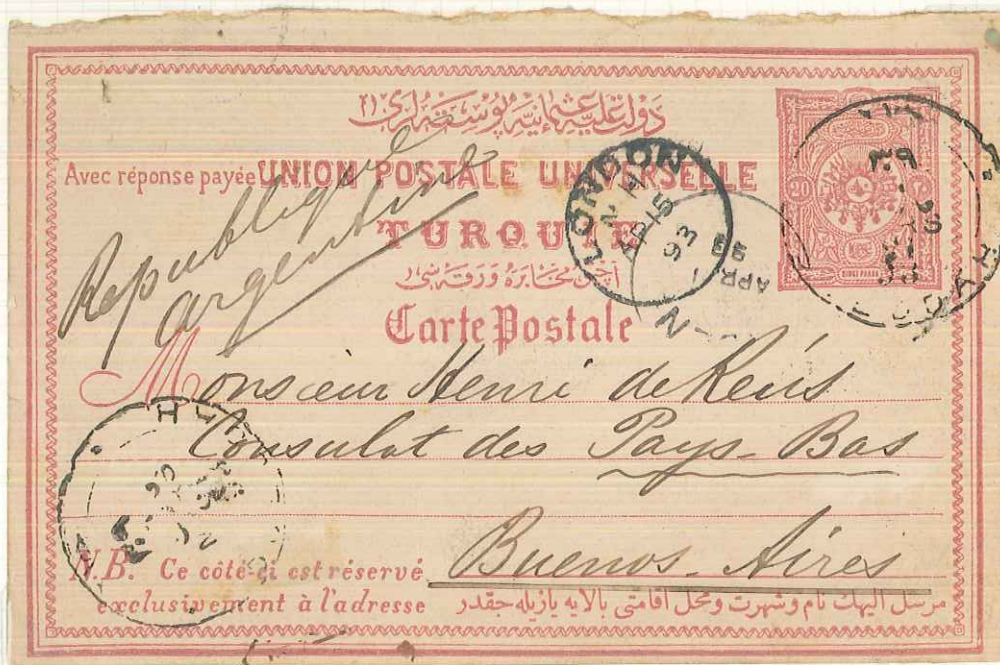 دولت علیهٔ عثمانیه پوسته لری
Avec réponse payée UNION POSTALE UNIVERSELLE
TURQUIE
Carte Postale
20
République
argentine
LONDON
N H
AP 15
93
APR
Monsieur Henri de Reús
Consulat des Pays-Bas
Buenos-Aires
N.B. Ce côté-çi est réservé
exclusivement à l'adresse
مرسل الیهك نام و شهرت و محل اقامتی بالایه یازیله جقدر